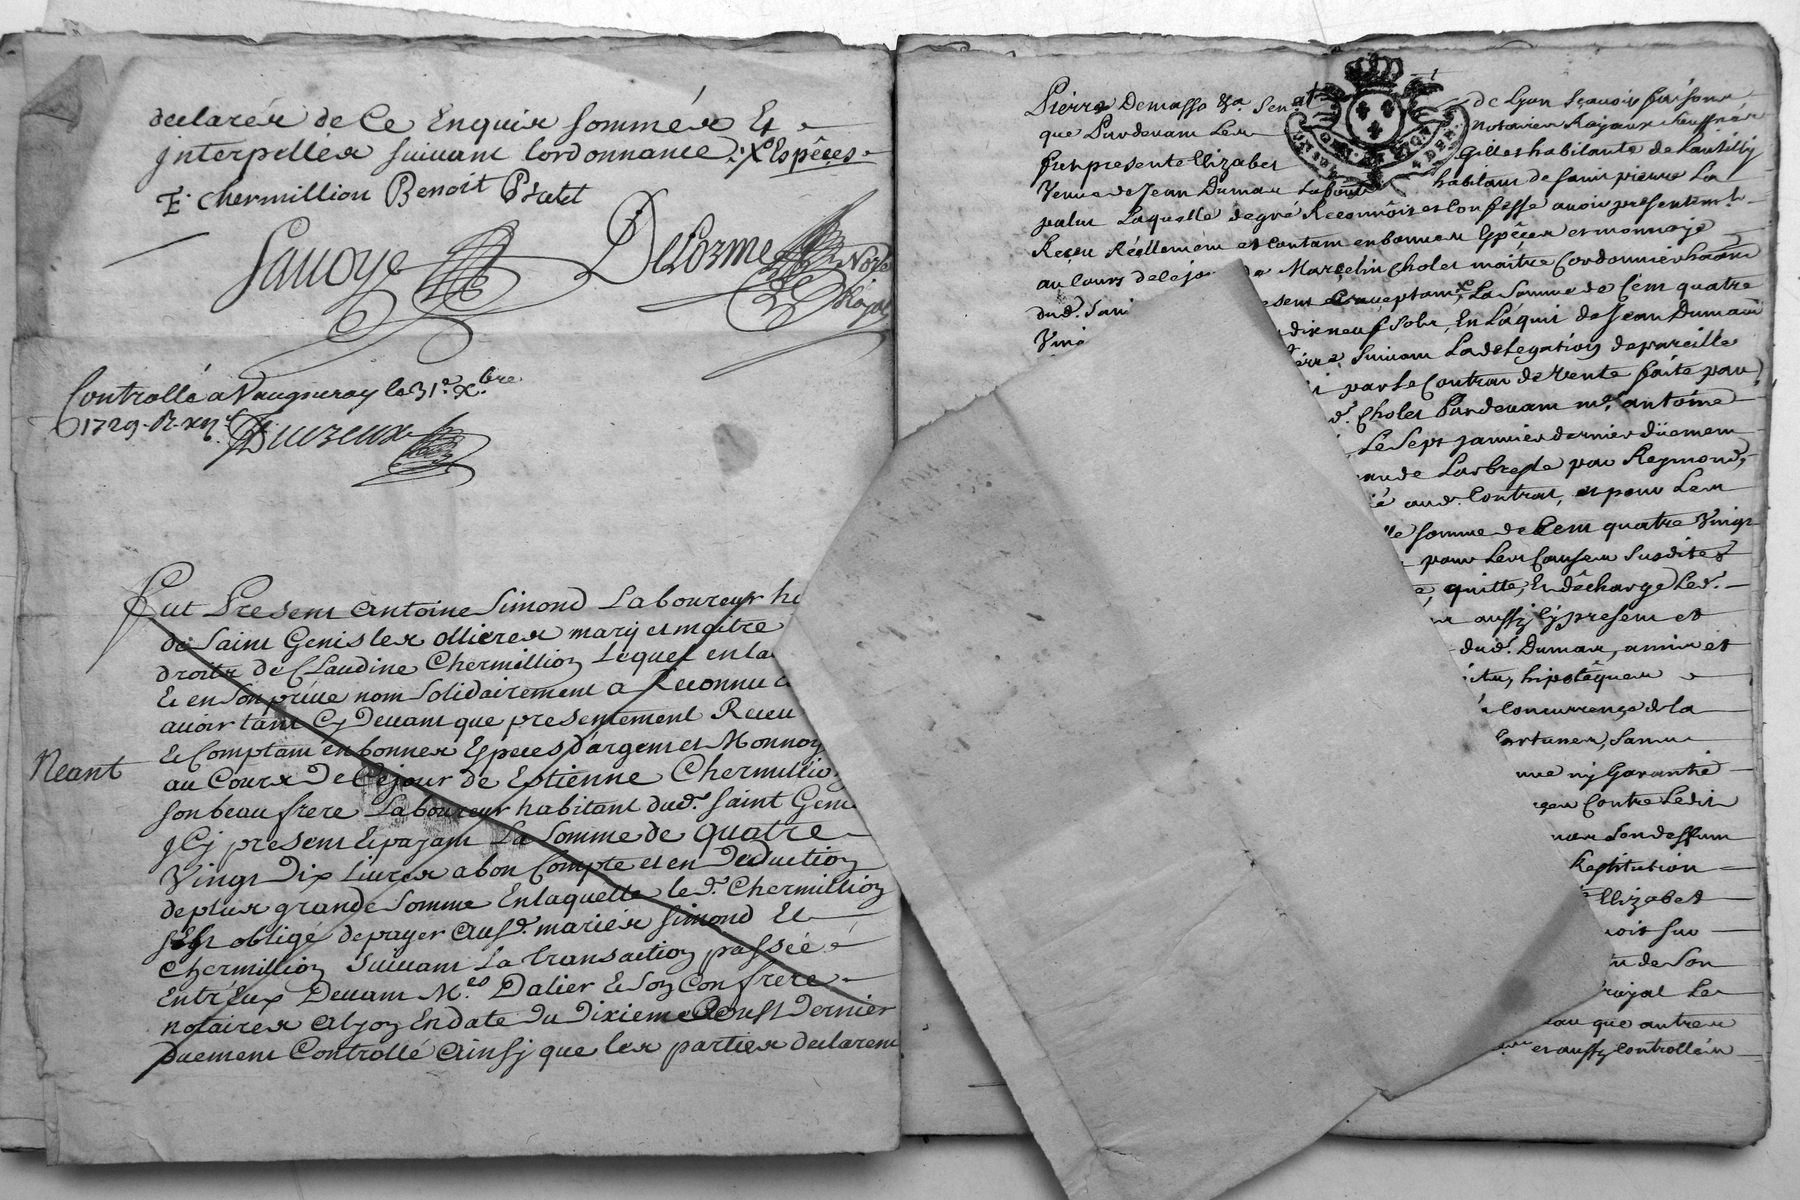 declarér de Ce Enquis sommér Et
Interpellér suivant lordonnance Xo Espêces
E. Chermillion Benoit Pratet
Sauoye Delorme Note
Royal
Controllé a Vaugneray le 31e Xbre
1729 R xijs
Duuzeux
Fut Present Antoine Simond Laboureur h
de Saint Genis les ollieres mary et maitre
droits de Claudine Chermillion Lequel en la
Et en Son priué nom solidairement a Reconnu
auoir tant Cy Deuant que presentement Receu
Et Comptant en bonnes Especes d'argent et Monnoy
au Cours De Cejour de Estienne Chermillio
son beau frere Laboureur habitant dud. Saint Gen
Neant
jCy present Et payant La Somme de quatre
Vingt Dix Liures a bon Compte et en Deduction
de plus grande somme Enlaquelle le d. Chermillion
sest obligé de payer Ausd. mariés Simond Et
Chermillion suiuant la transaction passée
Entr'Eux Deuant Me. Dalier Et Son Confrere
notaires ALyon En date du Dixieme Aoust Dernier
Duement Controllé Ainsy que les parties declarent
GEN. DE LYON
Pierre Demasso &a. Sen.al de Lyon sçauoir faisons
que Pardeuant Les notaires Royaux
fut presente Elizabet Gilles habitante de Lantilly
Veuue de Jean Dumas habitant de Saint pierre La
palu Laquelle de gré Reconnoit et Confesse auoir presentemt.
Receu Réellement et Contant en bonnes Espêces et monnoye
au Cours de ce jo Marcelin Cholet maitre Cordonnier habit
dud. Sain esent Et acceptant La Somme de Cent quatre
Ving dix neuf Sols, En Laquit de Jean Dumas
Suiuant La délégation de pareille
par le Contrat de Vente faite par
d. Cholet Pardeuant me. antoine
Le Sept januier dernier düement
Larbresle par Reymond,
é aud. Contrat, et pour Les
lle somme de Cent quatre Vingt
pour Les Causes Susdites
quitte, Et décharge Led.
aussy jCy present et
dud. Dumas, amis et
hipotêques
Concurrence de la
ortunes, Sans
ny Garantie
Contre Ledit
Son deffunt
Restitution
Elizabet
oit Sur
de Son
royal Les
que autres
et aussy Controllés